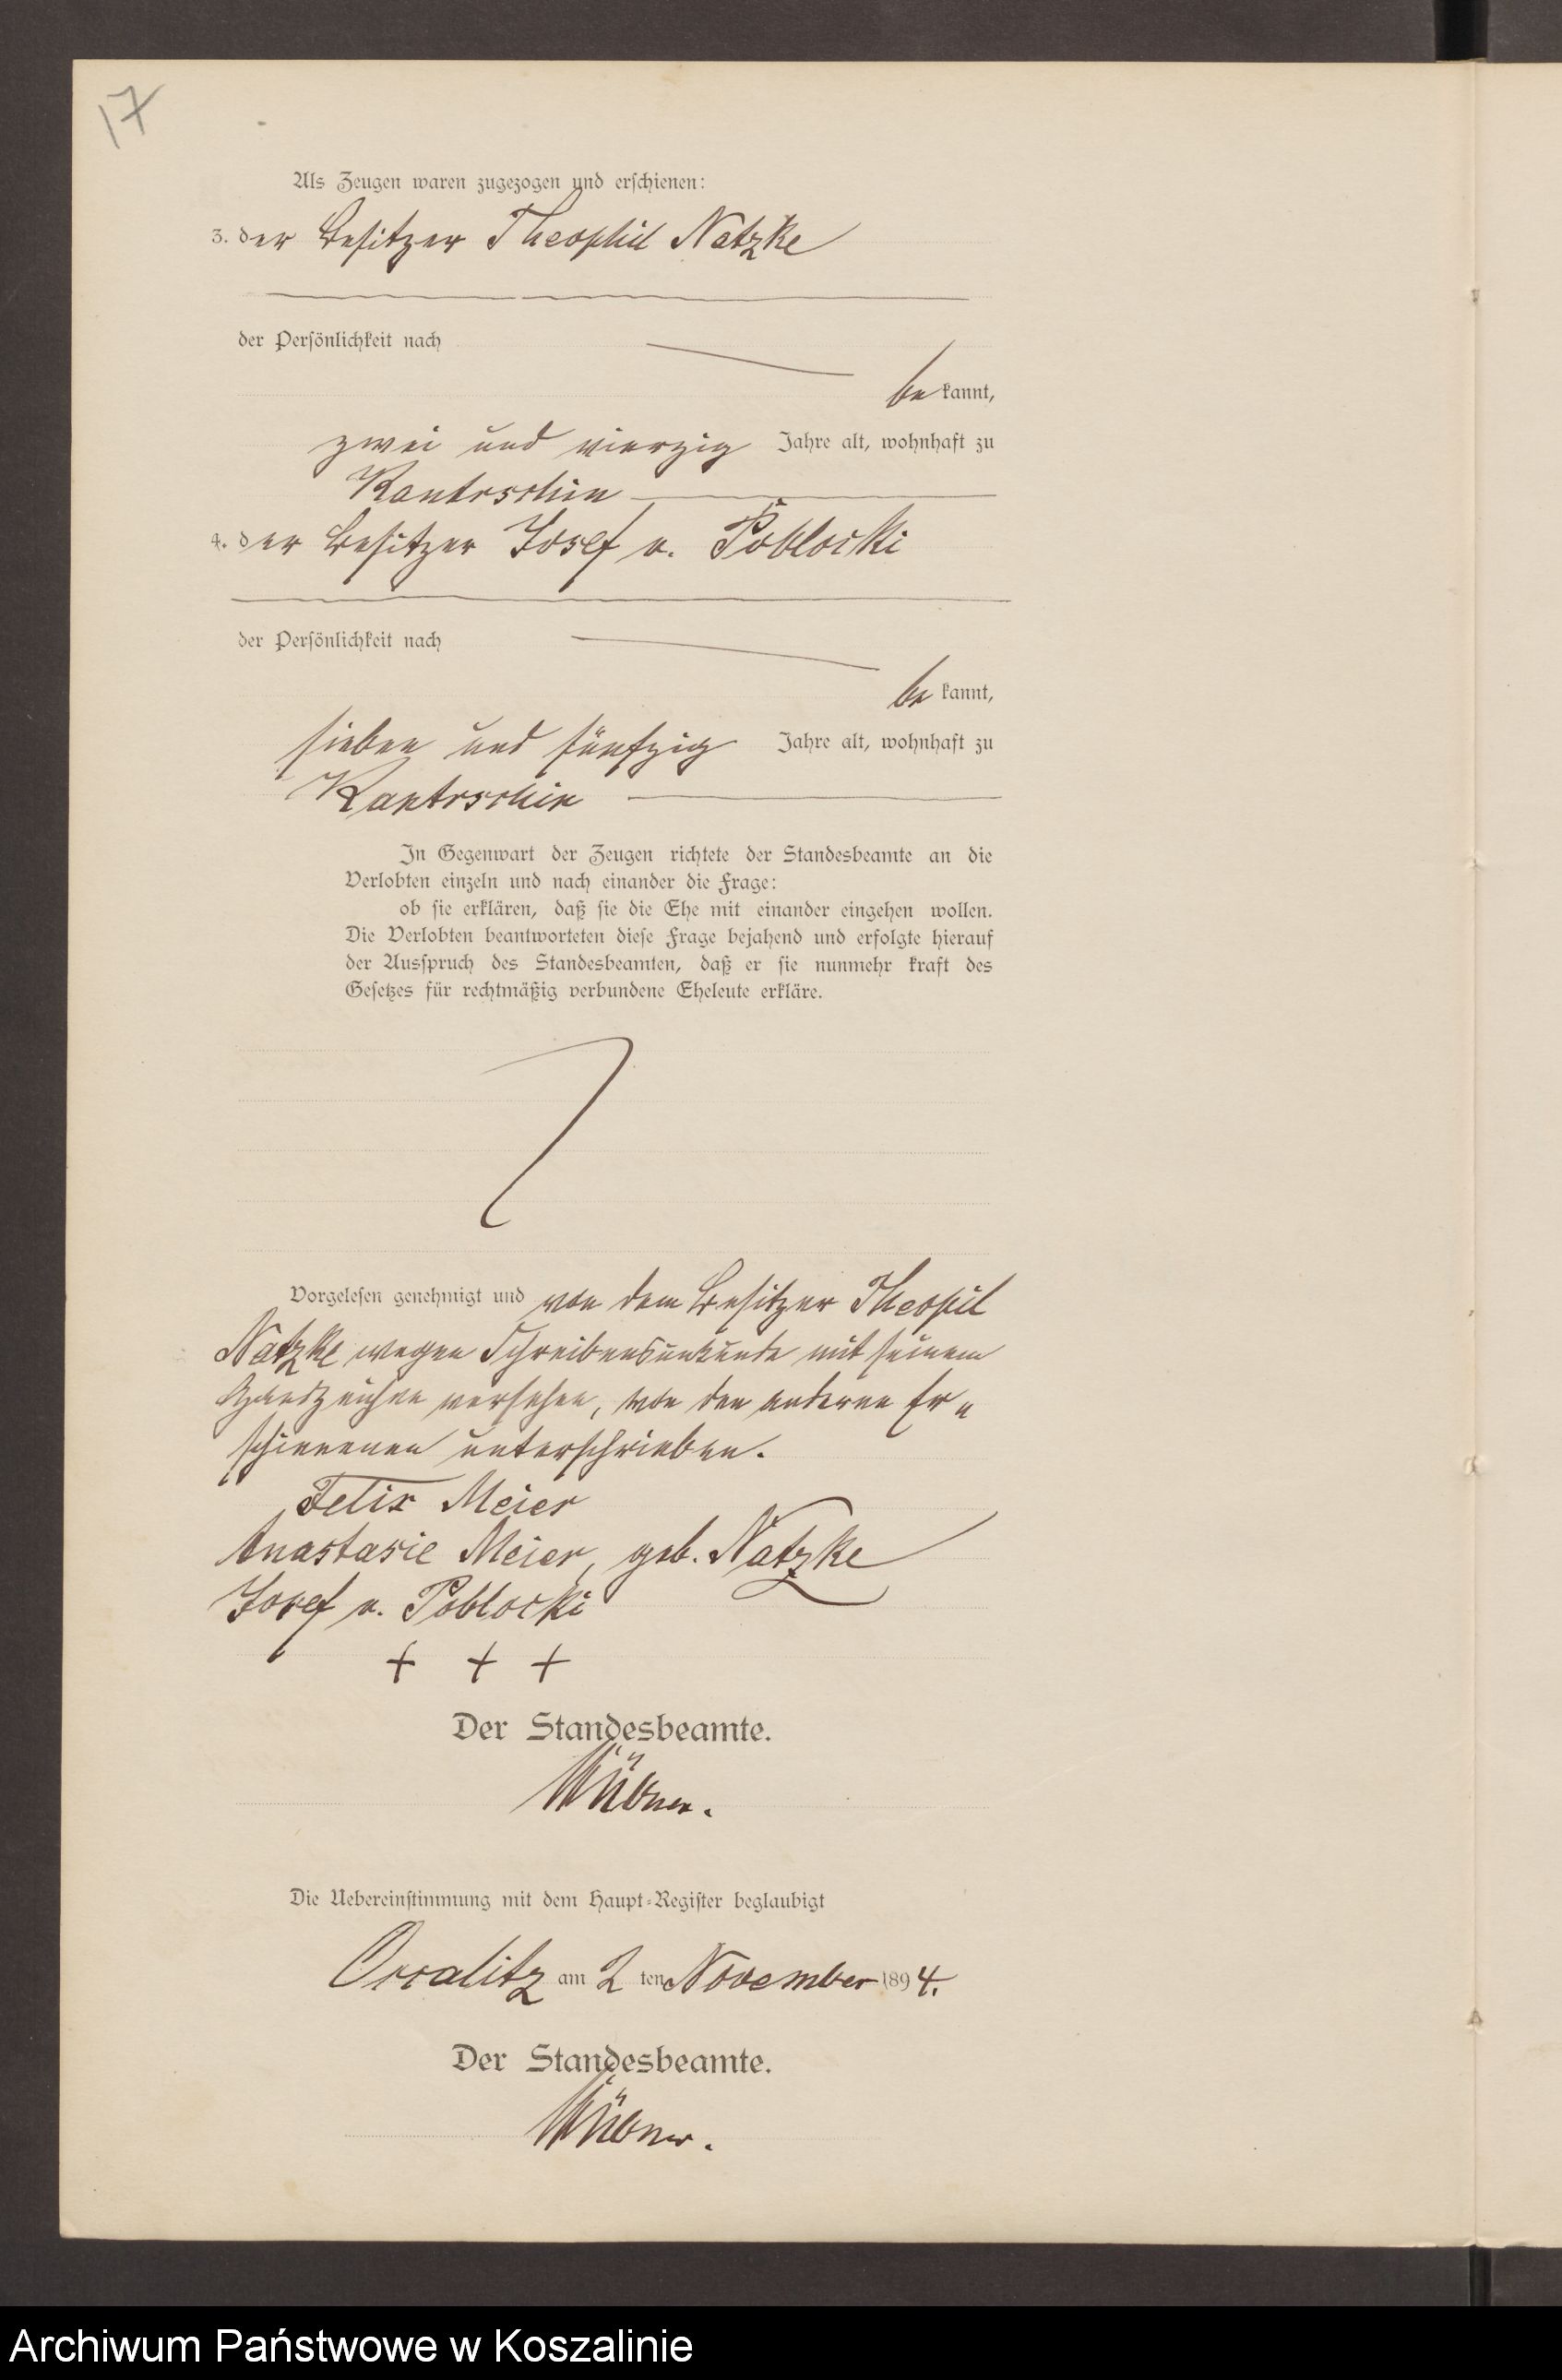 17
Als Zeugen waren zugezogen und erschienen:
3. der Besitzer Theophil Natzke
der Persönlichkeit nach
bekannt,
zwei und vierzig Jahre alt, wohnhaft zu
Kantrschin
4. der Besitzer Josef v. Poblocki
der Persönlichkeit nach
bekannt,
sieben und fünfzig Jahre alt, wohnhaft zu
Kantrschin
In Gegenwart der Zeugen richtete der Standesbeamte an die
Verlobten einzeln und nach einander die Frage:
ob sie erklären, daß sie die Ehe mit einander eingehen wollen.
Die Verlobten beantworteten diese Frage bejahend und erfolgte hierauf
der Ausspruch des Standesbeamten, daß er sie nunmehr kraft des
Gesetzes für rechtmäßig verbundene Eheleute erkläre.
Vorgelesen genehmigt und von dem Besitzer Theopil
Natzke wegen Schreibensunkunde mit seinem
Handzeichen versehen, von den anderen Er-
schienenen unterschrieben.
Felix Meier
Anastasie Meier, geb. Natzke
Josef v. Poblocki
+ + +
Der Standesbeamte.
Die Uebereinstimmung mit dem Haupt-Register beglaubigt
Occalitz am 2 ten November 1894.
Der Standesbeamte.
Archiwum Państwowe w Koszalinie